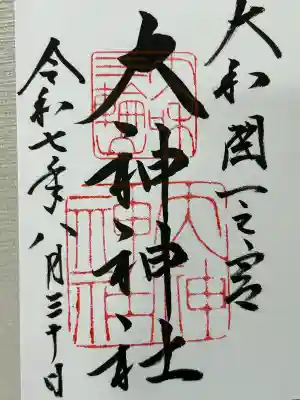 大和國一之宮
大神神社
大神神社
令和七年八月三十日